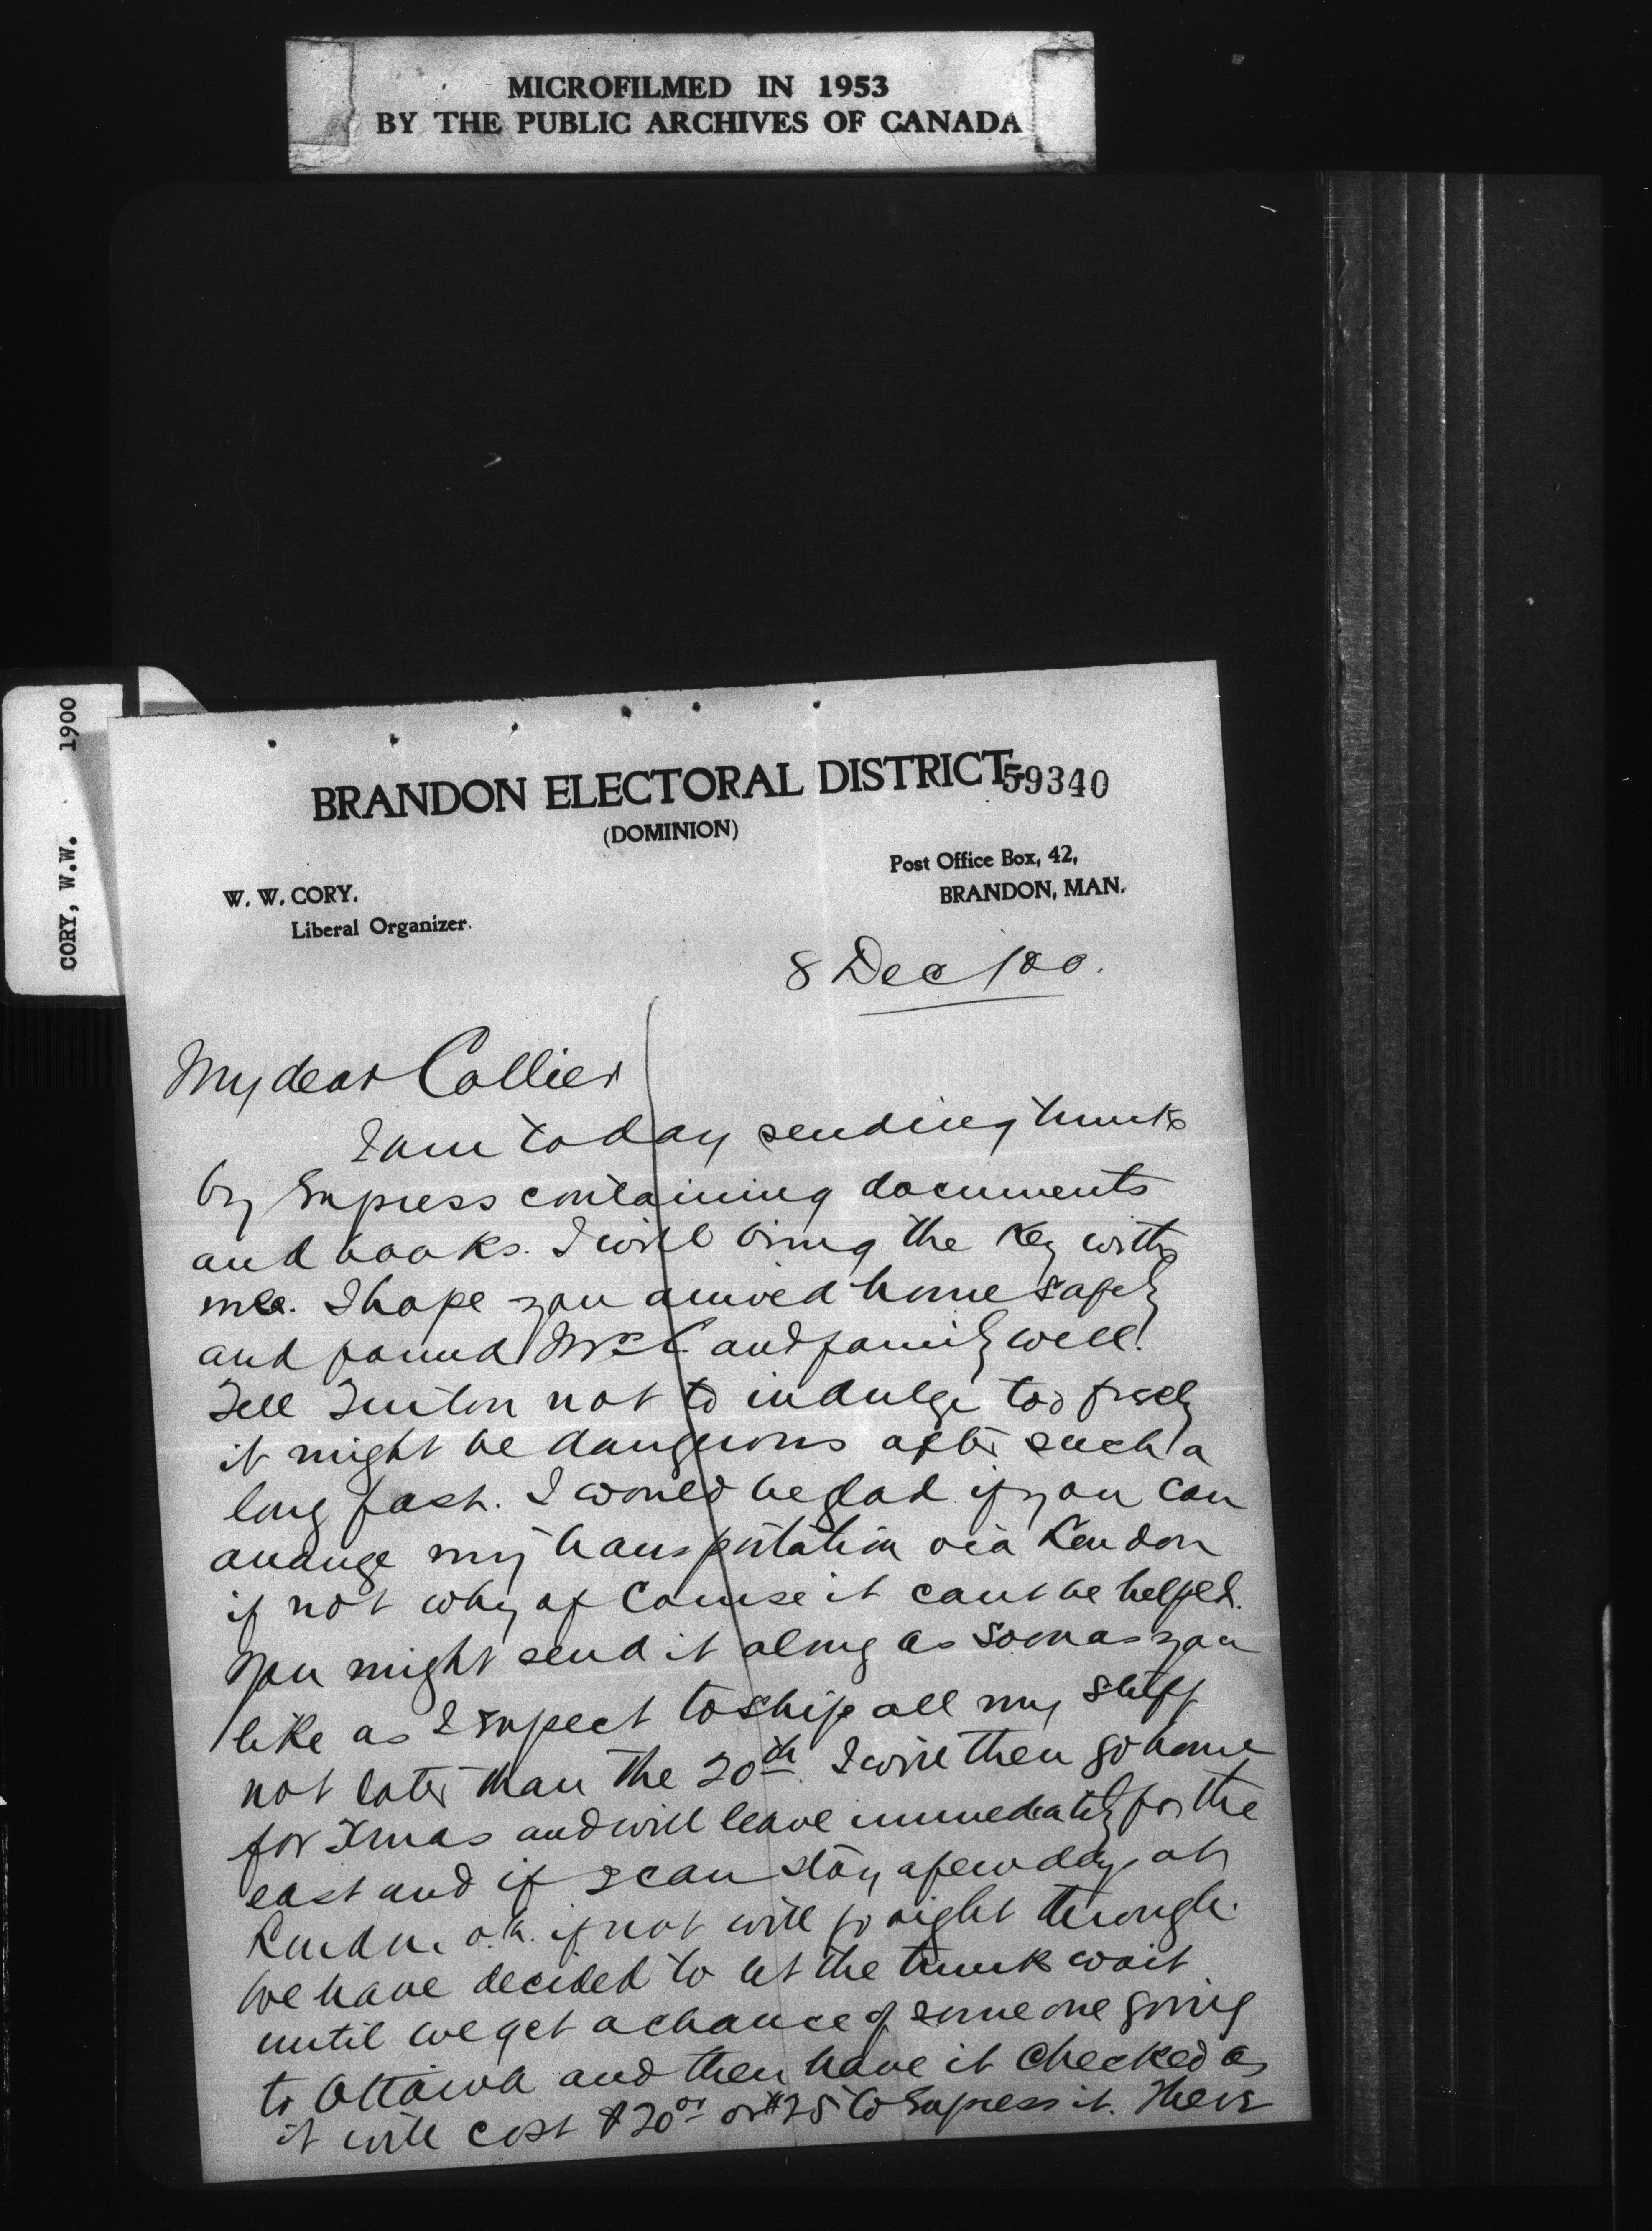 MICROFILMED IN 1953
BY THE PUBLIC ARCHIVES OF CANADA
CORY, W.W. 1900
BRANDON ELECTORAL DISTRICT.
59340
(DOMINION)
W. W. CORY.
Liberal Organizer.
Post Office Box, 42,
BRANDON, MAN.
8 Dec /00.
My dear Collier
I am today sending trunk
by Express containing documents
and books. I will bring the key with
me. I hope you arrived home safely
and found Mrs C. and family well.
Tell not to indulge too freely
it might be dangerous after such a
long fast. I would be glad if you can
arrange my transportation via London
if not why of course it cant be helped.
You might send it along as soon as you
like as I expect to ship all my stuff
not later than the 20th. I will then go home
for Xmas and will leave immediately for the
east and if I can stay a few days at
London o.k. if not will go right through.
We have decided to let the trunk wait
until we get a chance of some one going
to Ottawa and then have it checked as
it will cost $20 or $25 to Express it. There